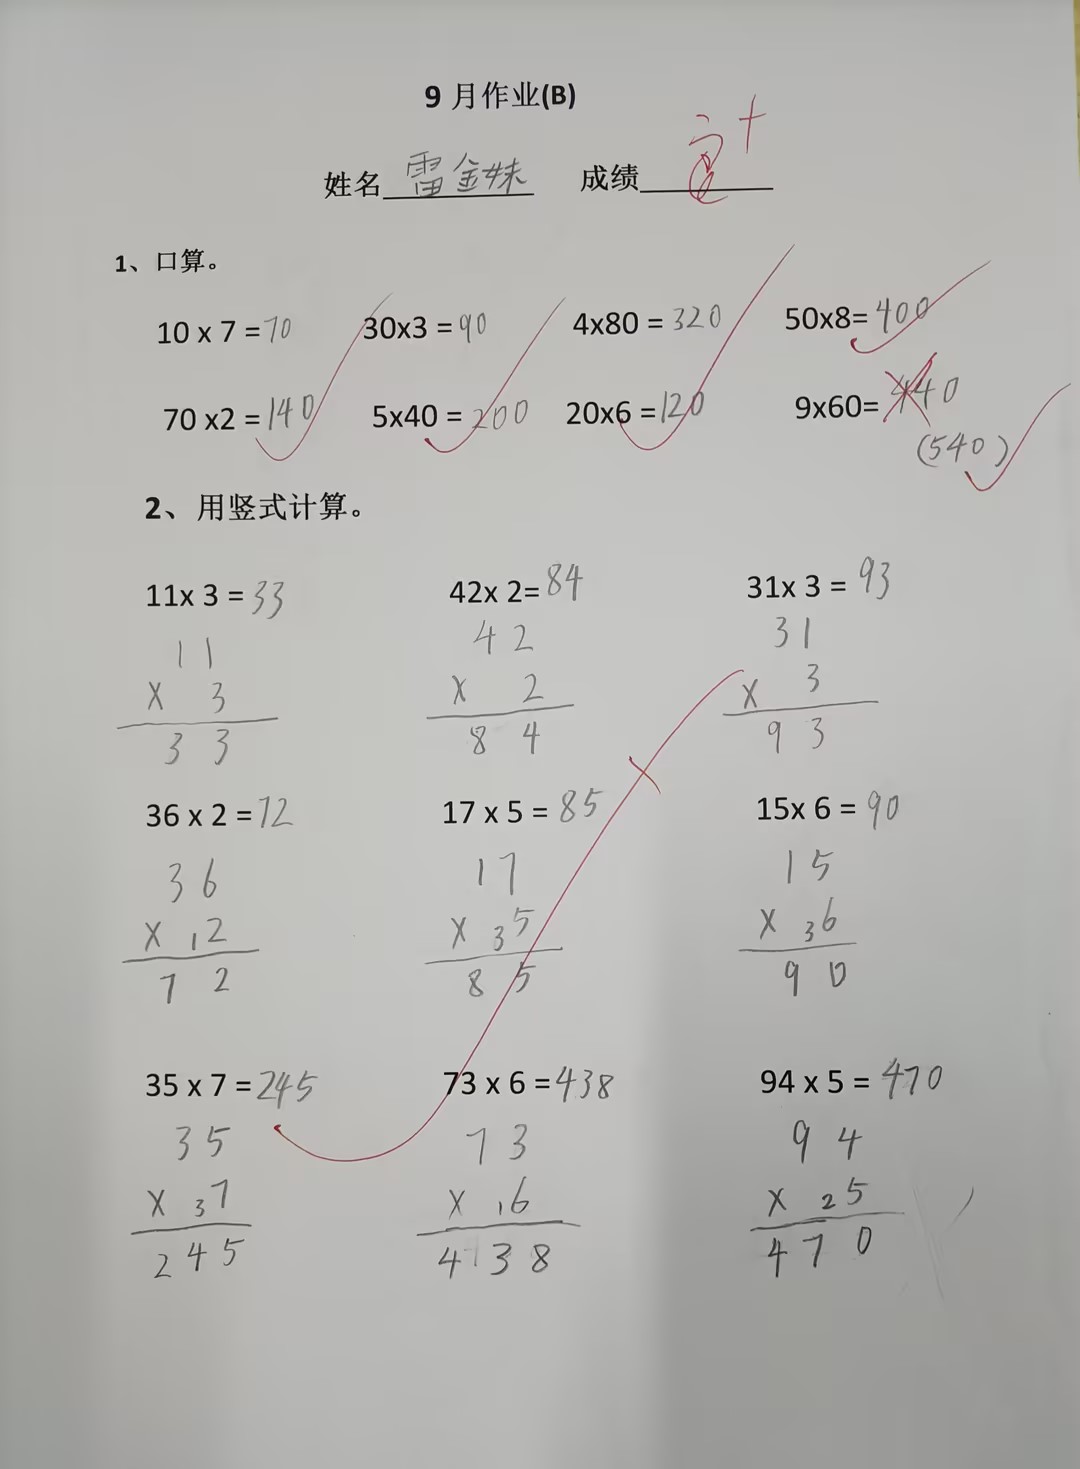 9月作业(B)
姓名 雷金妹 成绩
1、口算。
10 x 7 =70 30x3 =90 4x80 = 320 50x8= 400
70 x2 = 140 5x40 = 200 20x6 =120 9x60= 440
(540)
2、用竖式计算。
11x 3 = 33 42x 2= 84 31x 3 = 93
11 42 31
x 3 x 2 x 3
33 84 93
36 x 2 =72 17 x 5 = 85 15x 6 = 90
36 17 15
x 12 x 35 x 36
72 85 90
35 x 7 =245 73 x 6 =438 94 x 5 = 470
35 73 94
x 37 x 16 x 25
245 438 470